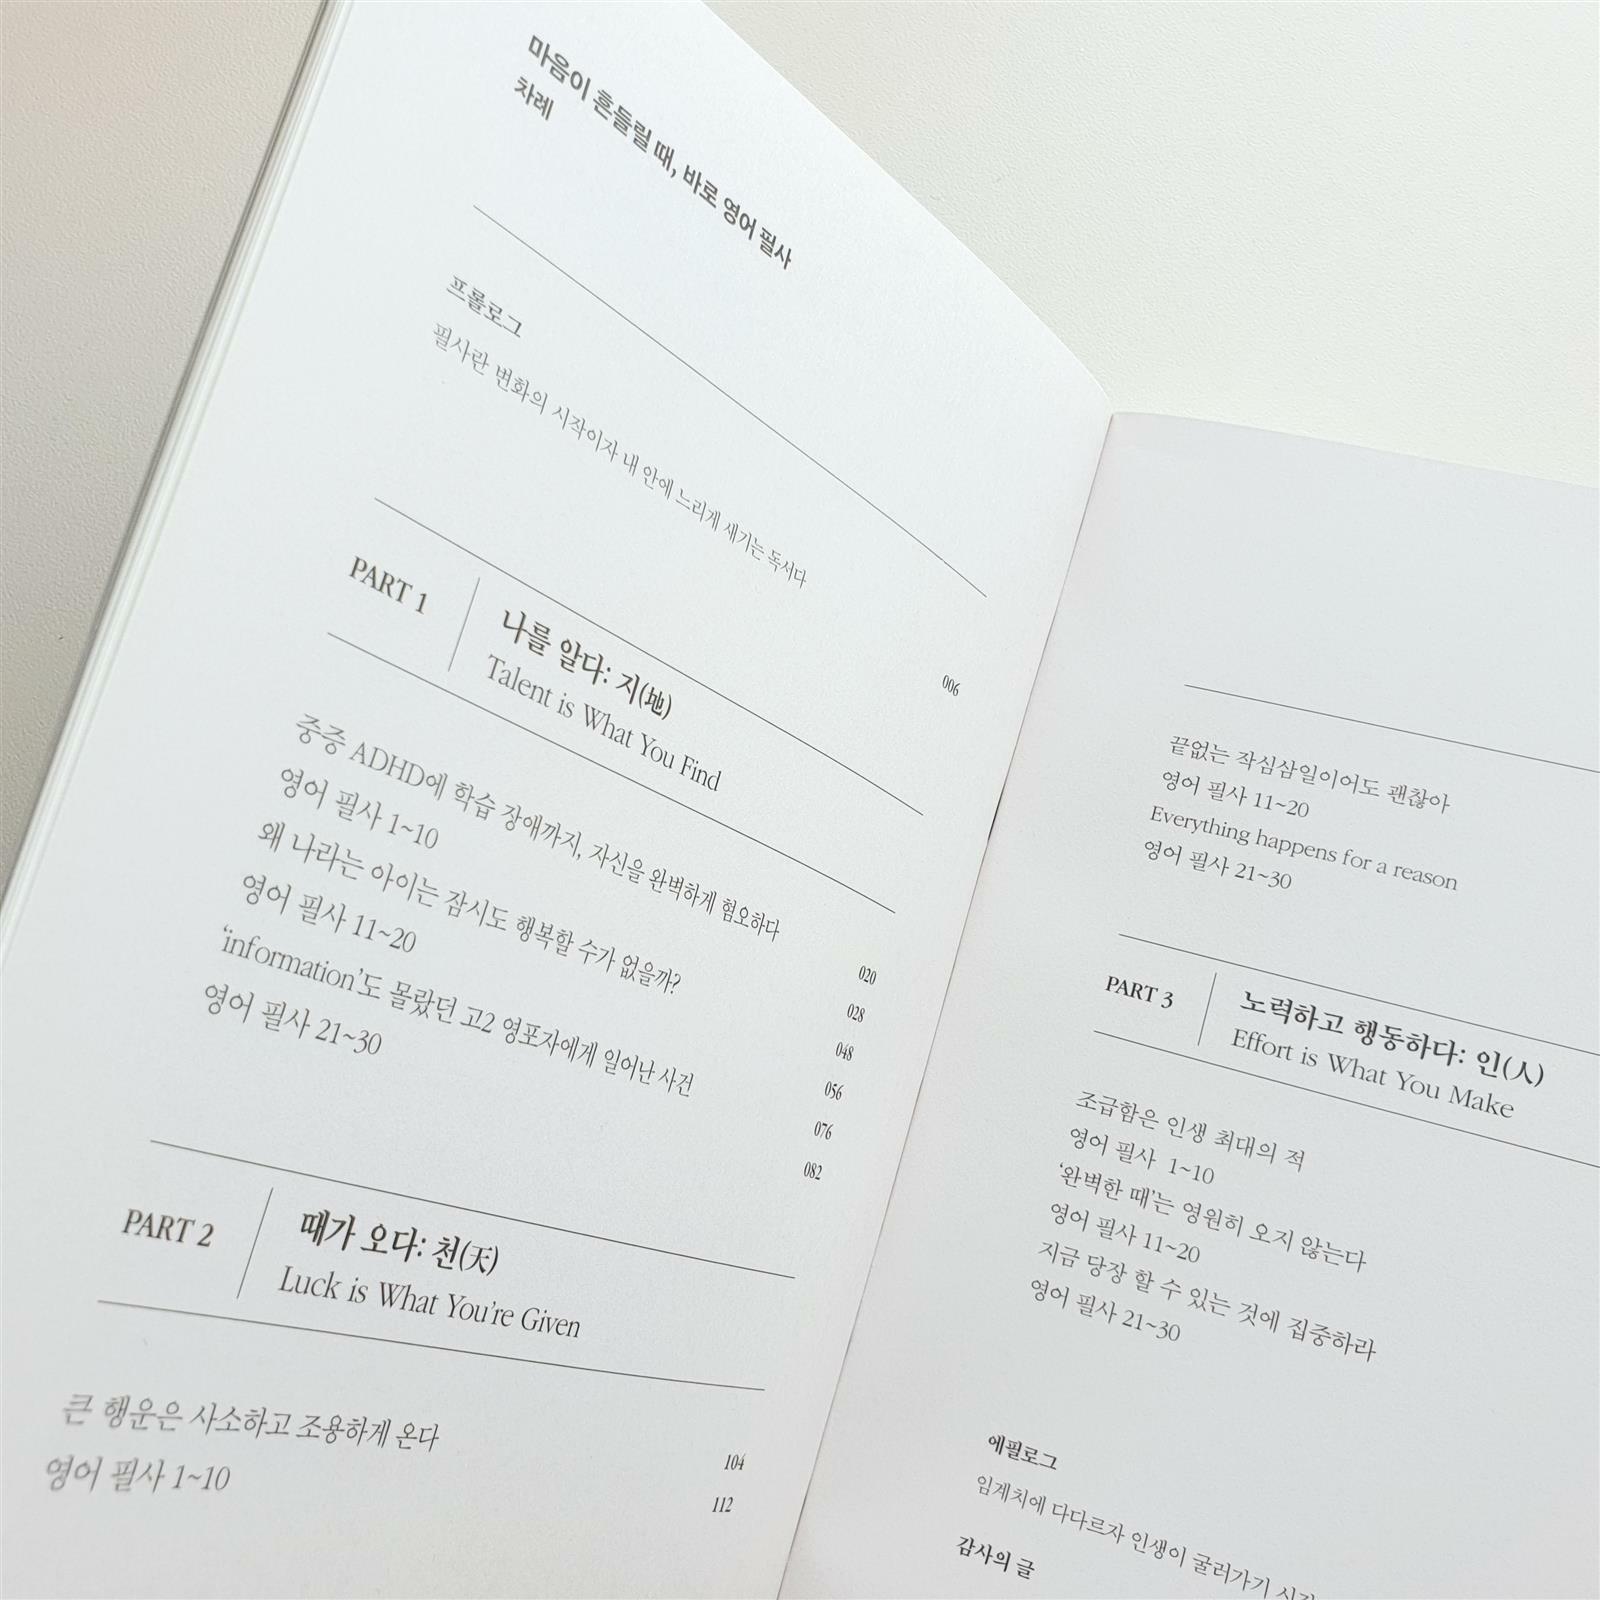 마음이 흔들릴 때, 바로 영어 필사
차례
프롤로그
필사란 변화의 시작이자 내 안에 느리게 새기는 독서다 006
PART 1 나를 알다: 지(地)
Talent is What You Find
중증 ADHD에 학습 장애까지, 자신을 완벽하게 혐오하다 020
영어 필사 1~10 028
왜 나라는 아이는 잠시도 행복할 수가 없을까? 048
영어 필사 11~20 056
'information'도 몰랐던 고2 영포자에게 일어난 사건 076
영어 필사 21~30 082
PART 2 때가 오다: 천(天)
Luck is What You're Given
큰 행운은 사소하고 조용하게 온다 104
영어 필사 1~10 112
끝없는 작심삼일이어도 괜찮아
영어 필사 11~20
Everything happens for a reason
영어 필사 21~30
PART 3 노력하고 행동하다: 인(人)
Effort is What You Make
조급함은 인생 최대의 적
영어 필사 1~10
'완벽한 때'는 영원히 오지 않는다
영어 필사 11~20
지금 당장 할 수 있는 것에 집중하라
영어 필사 21~30
에필로그
임계치에 다다르자 인생이 굴러가기
감사의 글